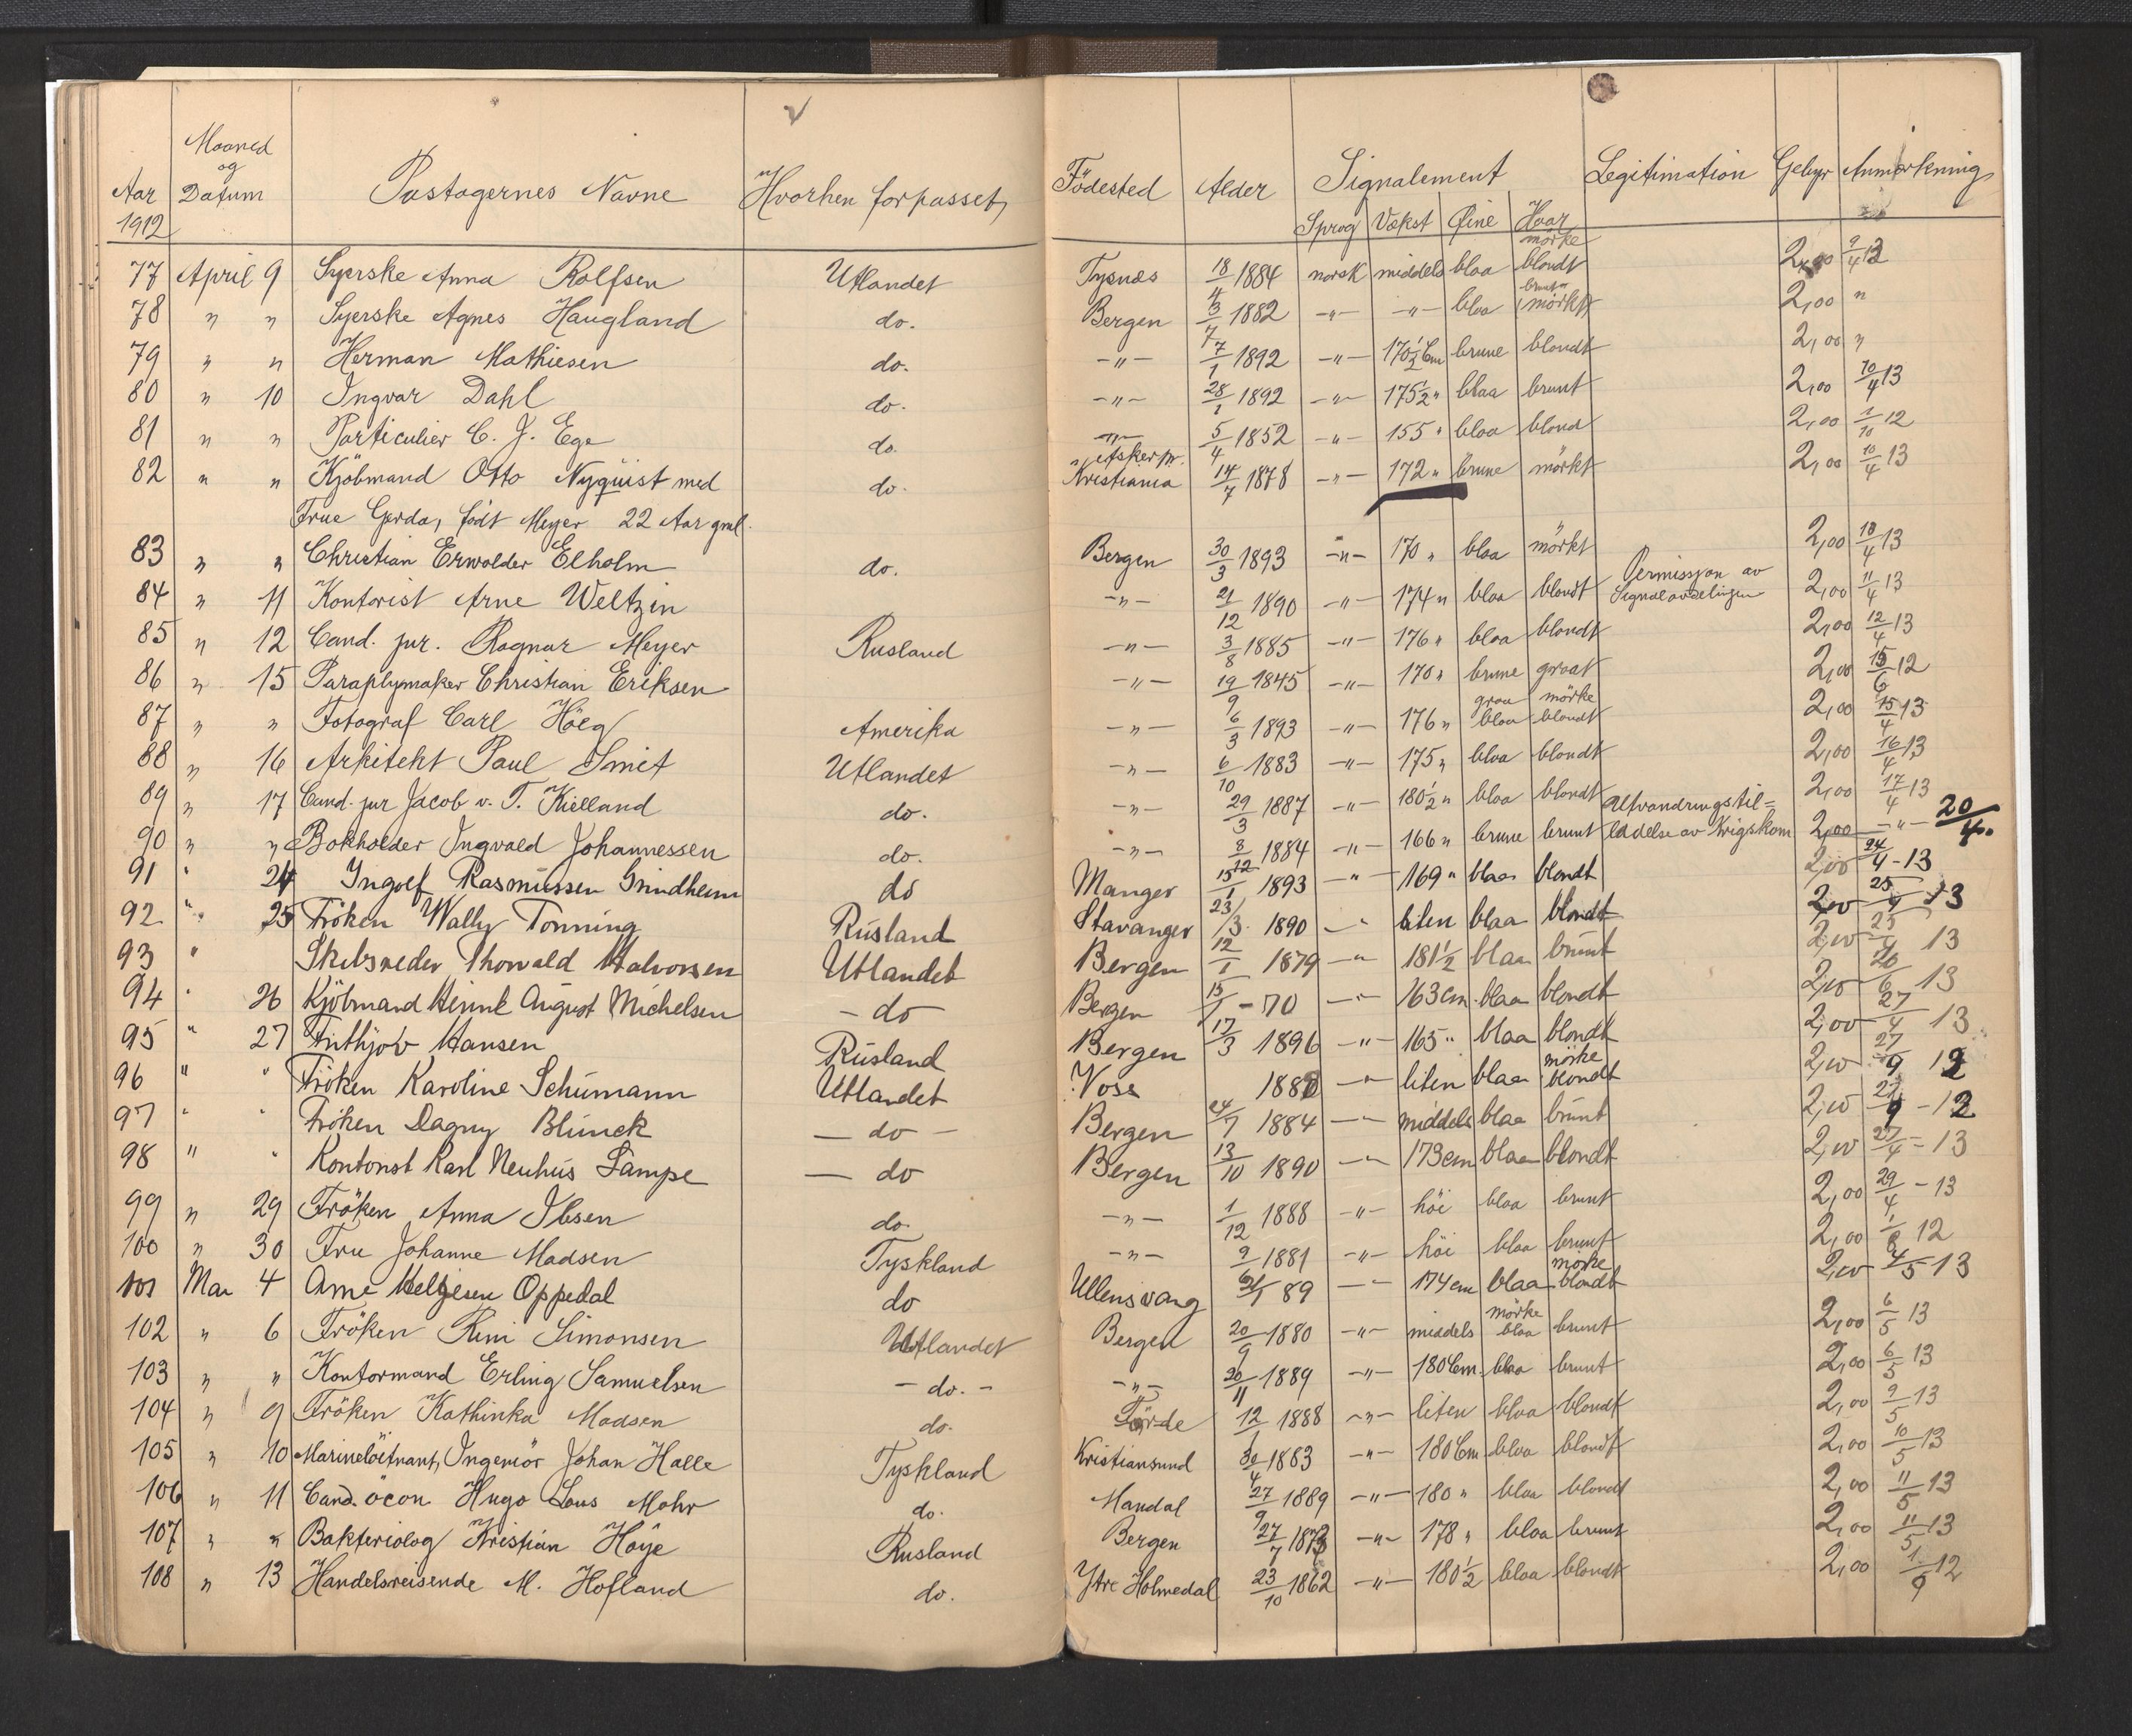 Aar 1912 Maaned og Datum Pastagernes Navne Hvorhen forpasset Födested Alder Signalement Legitimation Gebyr Anmerkning
Sprog Vækst Øine Haar
77 April 9 Syerske Anna Rolfsen Utlandet Tysnæs 18/4 1884 norsk middels blaa mörke blondt 2,00 9/4 13
78 " " Syerske Agnes Haugland do. Bergen 3/7 1882 -"- -"- blaa brunt mörkt 2,00 "
79 " " Herman Mathiesen do. -"- 7/1 1892 -"- 170 1/2 Cm brune blondt 2,00 "
80 " 10 Ingvar Dahl do. -"- 28/1 1892 -"- 175 1/2 " blaa brunt 2,00 10/4 13
81 " " Particulier C. J. Ege do. -"- 5/4 1852 -"- 155 " blaa blond 2,00 1/10 12
82 " " Kjöbmand Otto Nyquist med do. Asker pr. Kristiania 14/7 1878 -"- 172 " brune mörkt 2,00 10/4 13
Frue Gerda, födt Meyer 22 Aar gml.
83 " " Christian Erwolder Elholm do. Bergen 30/3 1893 -"- 170 " blaa mörkt 2,00 10/4 13
84 " 11 Kontorist Arne Weltzin -"- 21/12 1890 -"- 174 " blaa blondt Permissjon av Signalavdelingen 2,00 11/4 13
85 " 12 Cand. jur. Ragnar Meyer Rusland -"- 3/8 1885 -"- 176 " blaa blondt 2,00 12/4 13
86 " 15 Paraplymaker Christian Eriksen -"- 19/9 1845 -"- 170 " brune graat 2,00 15/6 12
87 " " Fotograf Carl Höeg Amerika -"- 6/3 1893 -"- 176 " graa blaa mörke blondt 2,00 15/4 13
88 " 16 Arkitekt Paul Smit Utlandet -"- 6/10 1883 -"- 175 " blaa blondt 2,00 16/4 13
89 " 17 Cand. jur Jacob v. T. Kielland do. -"- 29/3 1887 -"- 180 1/2 " blaa blondt 2,00 17/4 13
90 " " Bokholder Ingvald Johannessen do. -"- 8/12 1884 -"- 166 " brune brunt Utvandringstil= ladelse av Krigskom 2,00 -"- 20/4.
91 " 24 Ingolf Rasmussen Grindheim do Manger 15/1 1893 -"- 169 " blaa blondt 2,00 24/4 - 13
92 " 25 Fröken Wally Tonning Rusland Stavanger 23/3 1890 -"- liten blaa blondt 2,00 25/4 13
93 " Skibsreder Thorvald Halvorsen Utlandet Bergen 12/1 1879 -"- 181 1/2 blaa brunt 2,00 25/4 13
94 " 26 Kjöbmand Henrik August Michelsen - do - Bergen 15/1 - 70 -"- 163 cm. blaa blondt 2,00 26/6 13
95 " 27 Frithjov Hansen Rusland Bergen 17/3 1896 -"- 165 " blaa blondt 2,00 27/4 13
96 " " Fröken Karoline Schumann Utlandet Voss 1880 -"- liten blaa mörke blondt 2,00 27/9 12
97 " " Fröken Dagny Blunck - do - Bergen 24/7 1884 -"- middels blaa brunt 2,00 27/9 - 12
98 " " Kontorist Karl Neuhus Lampe - do Bergen 13/10 1890 -"- 173 cm blaa blondt 2,00 27/4 - 13
99 " 29 Fröken Anna Ibsen do. -"- 1/12 1888 -"- höi blaa brunt 2,00 29/4 - 13
100 " 30 Fru Johanne Madsen Tyskland -"- 9/6 1881 -"- höi blaa brunt 2,00 1/8 12
101 Mai 4 Arne Helgesen Oppedal do Ullensvang 89 -"- 174 cm blaa mörke blondt 2,00 4/5 13
102 " 6 Fröken Rini Simonsen Utlandet Bergen 20/9 1880 -"- middels mörke blaa brunt 2,00 6/5 13
103 " " Kontormand Erling Samuelsen - do. - -"- 20/11 1889 -"- 180 Cm. blaa brunt 2,00 6/5 13
104 " 9 Fröken Kathinka Madsen do. Förde 12/1 1888 -"- liten blaa blondt 2,00 9/5 13
105 " 10 Marinelöitnant, Ingeniör Johan Halle Tyskland Kristiansund 30/4 1883 -"- 180 Cm blaa blondt 2,00 10/5 13
106 " 11 Cand. öcon Hugo Lous Mohr do. Mandal 27/9 1889 -"- 180 " blaa blondt 2,00 11/5 13
107 " " Bakteriolog Kristian Höye Rusland Bergen 27/7 1873 -"- 178 " blaa brunt 2,00 11/5 13
108 " 13 Handelsreisende M. Hofland do. Ytre Holmedal 23/10 1862 -"- 180 1/2 blaa blondt 2,00 1/9 12